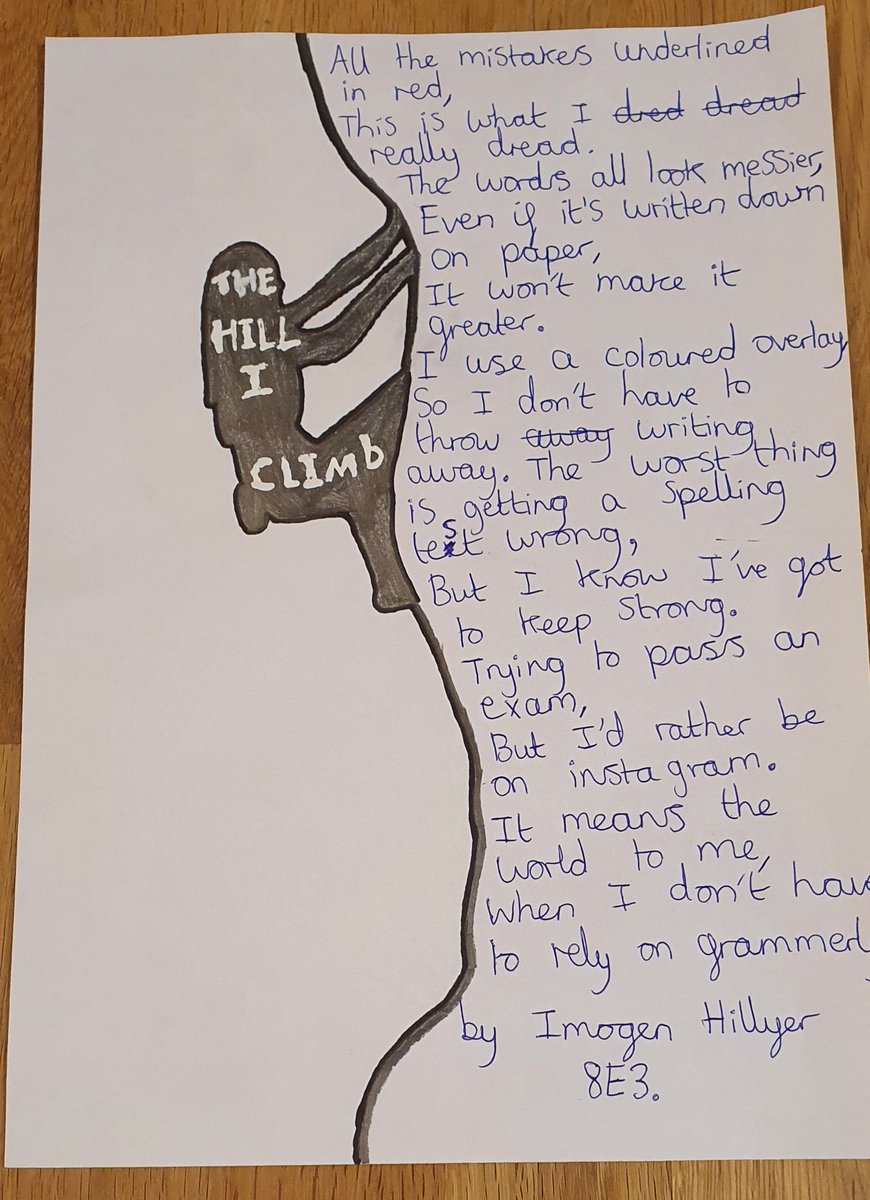 THE
HILL
I
CLIMb
All the mistakes underlined
in red,
This is what I dred dread
really dread.
The words all look messier,
Even if it's written down
on paper,
It won't make it
greater.
I use a coloured overlay
So I don't have to
throw away writing
away. The worst thing
is getting a spelling
test wrong,
But I know I've got
to keep strong.
Trying to pass an
exam,
But I'd rather be
on instagram.
It means the
world to me,
When I don't hav
to rely on grammerl
by Imogen Hillyer
8E3.